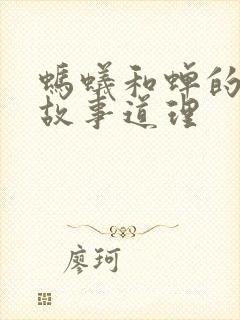 螞蟻和蟬的
故事道理
廖珂